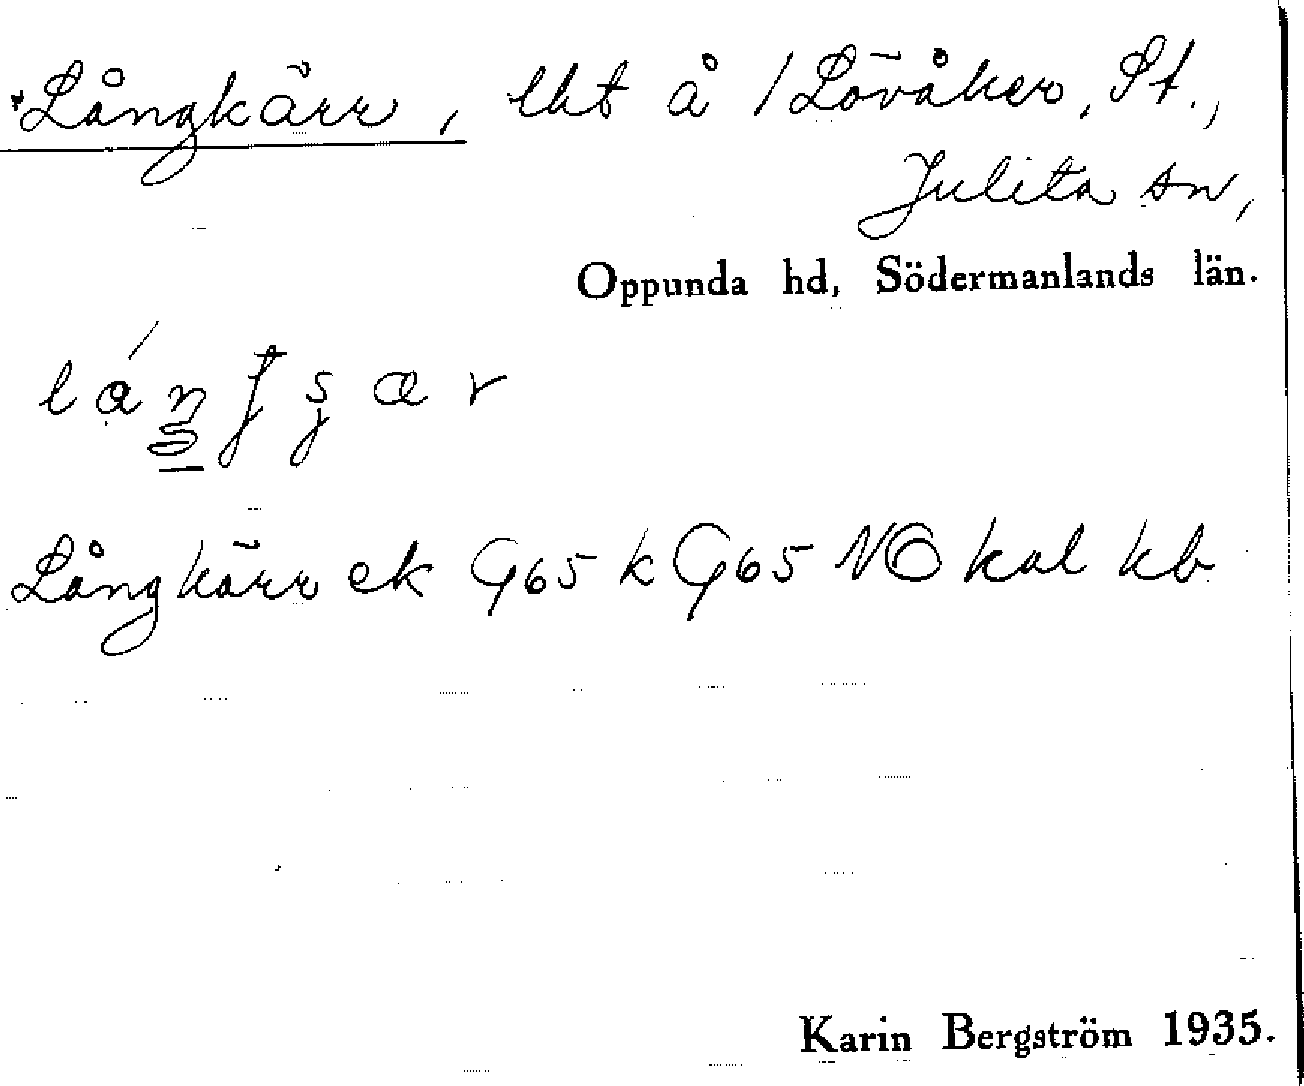 *Långkärr, lht å 1 Lövåker, St.,
Julita sn,
Oppunda hd, Södermanlands län.
Långkärr ek G65 k G65 NO kal kb
Karin Bergström 1935.